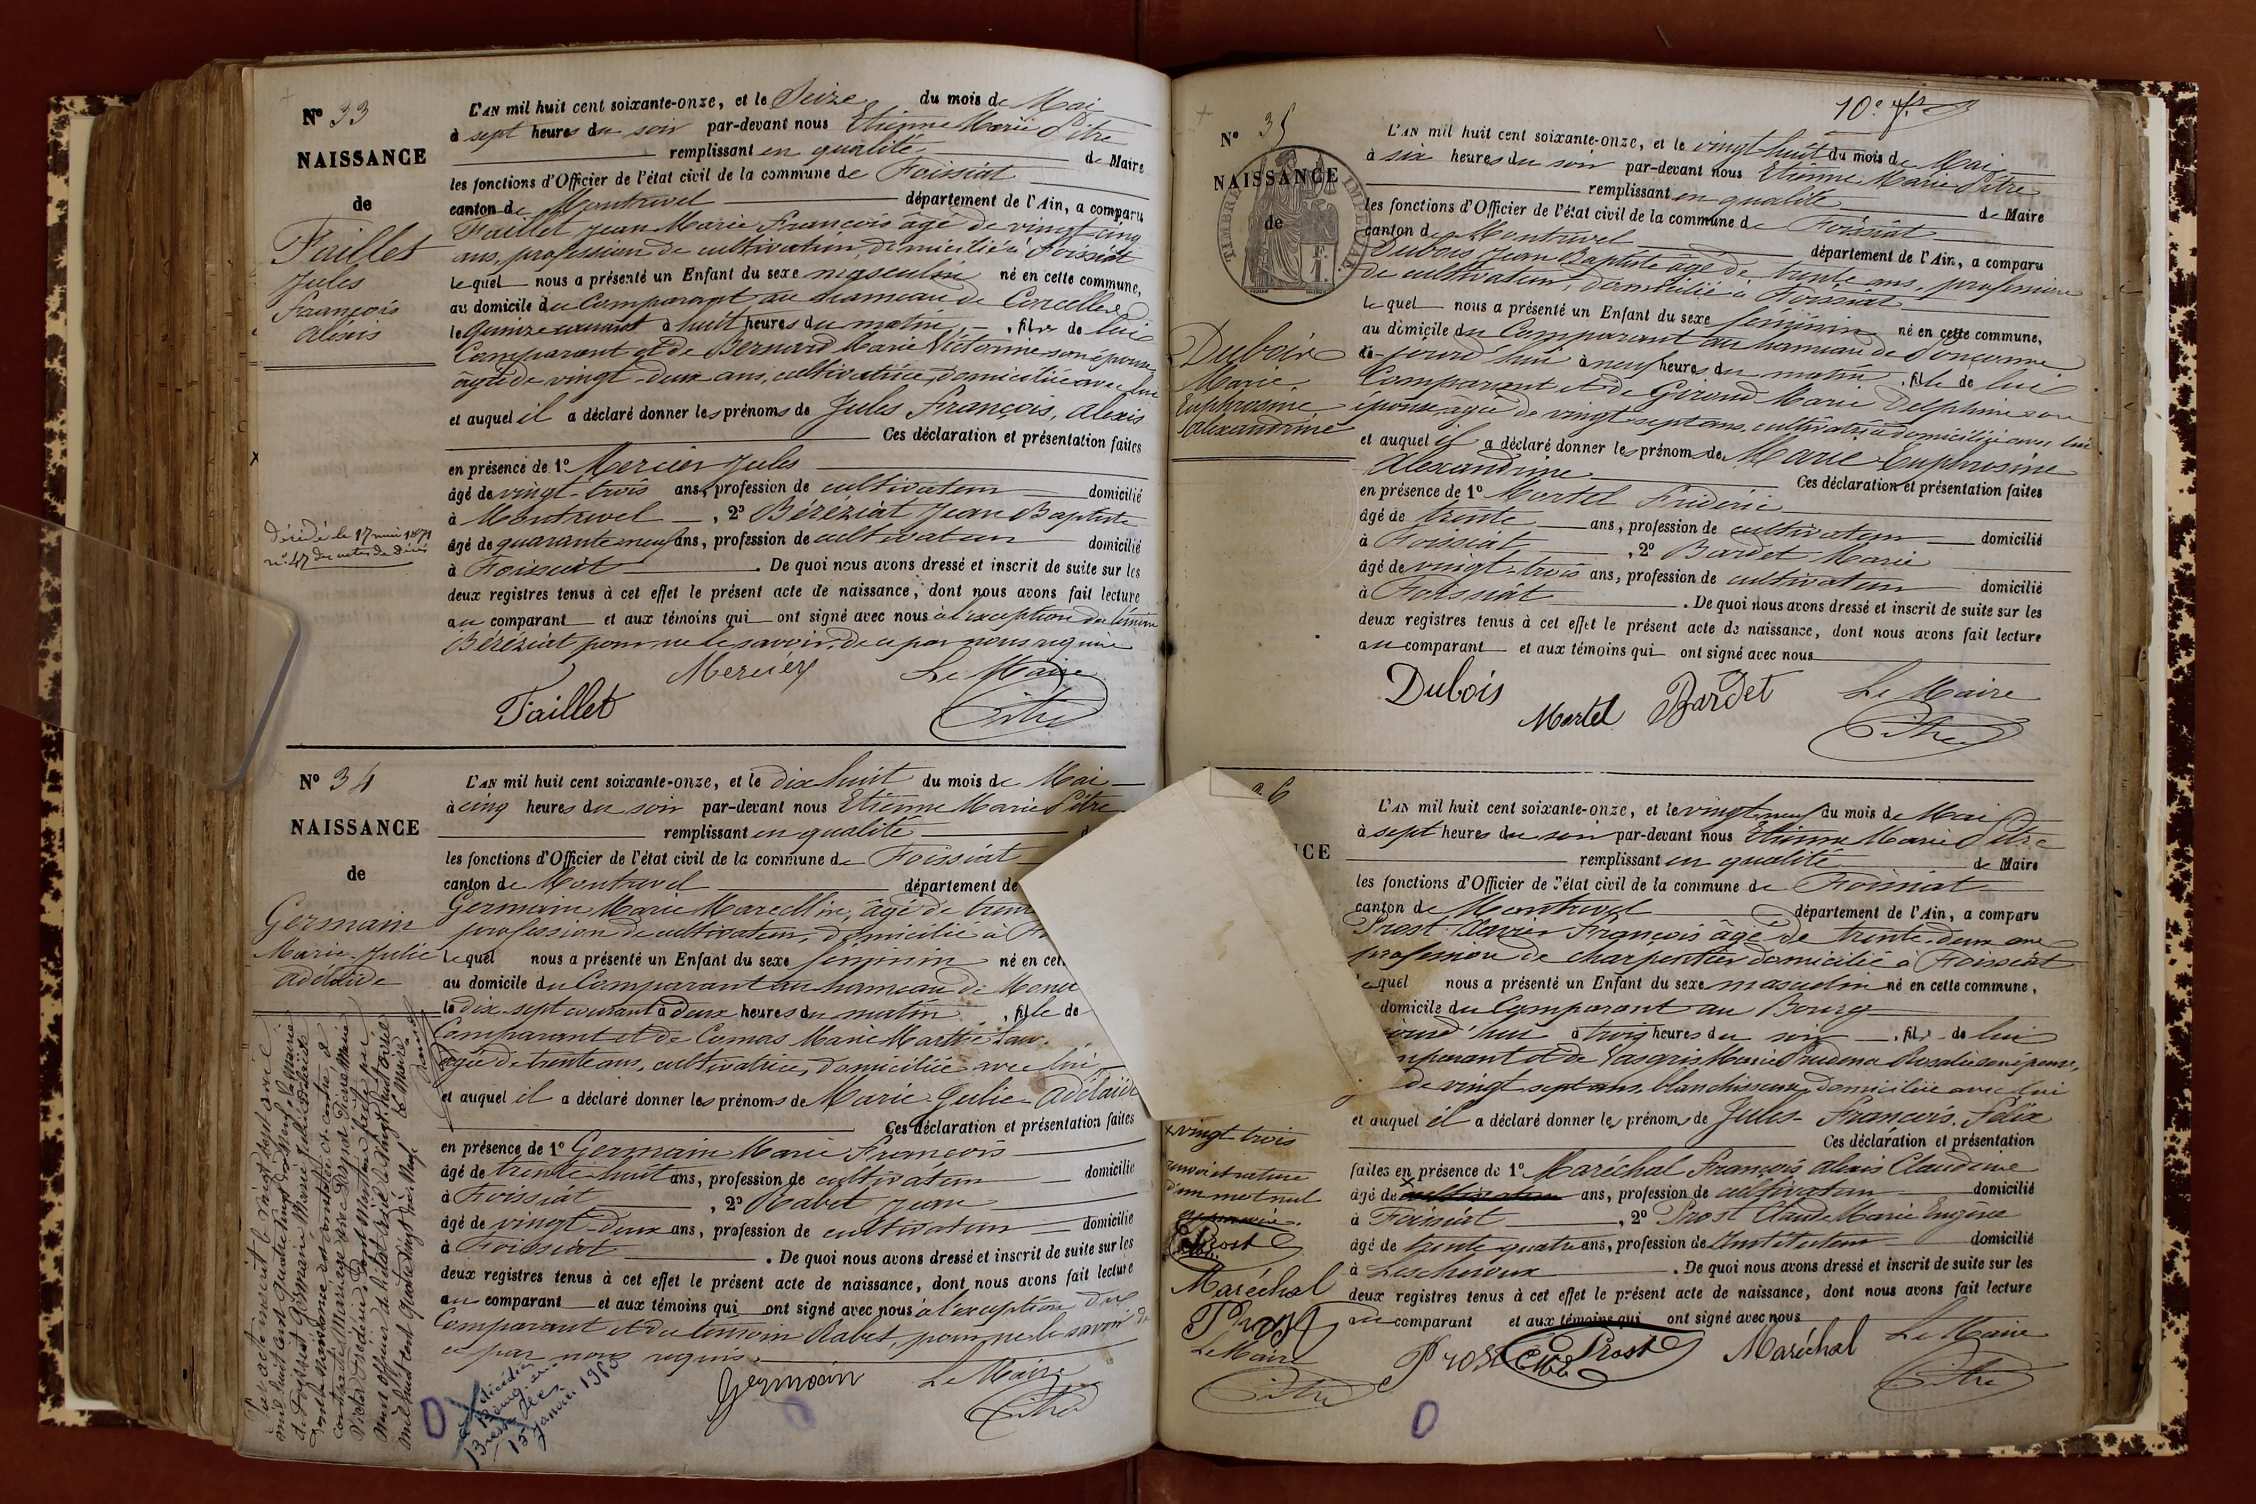 Nº 33
NAISSANCE
de
Faillet
Jules
François
Alexis
décédé le 17 mai 1871
nº 47 des actes de décès
L'AN mil huit cent soixante-onze, et le Seize du mois de Mai
à sept heures du soir par-devant nous Etienne Marie Pitre
remplissant en qualité de Maire
les fonctions d'Officier de l'état civil de la commune de Foissiat
canton de Montrevel département de l'Ain, a comparu
Faillet Jean Marie François âgé de vingt-cinq
ans, profession de cultivateur, domicilié à Foissiat
lequel nous a présenté un Enfant du sexe masculin né en cette commune,
au domicile du Comparant au hameau de Corcelles
le quinze courant à huit heures du matin, fils de lui
Comparant et de Bernard Marie Victorine son épouse
âgée de vingt-deux ans, cultivatrice, domiciliée avec lui
et auquel il a déclaré donner les prénoms de Jules François, Alexis
Ces déclaration et présentation faites
en présence de 1º Mercier Jules
âgé de vingt-trois ans, profession de cultivateur domicilié
à Montrevel, 2º Béréziat Jean Baptiste
âgé de quarante neuf ans, profession de cultivateur domicilié
à Foissiat. De quoi nous avons dressé et inscrit de suite sur les
deux registres tenus à cet effet le présent acte de naissance, dont nous avons fait lecture
au comparant et aux témoins qui ont signé avec nous à l'exception du témoin
Béréziat pour ne le savoir, de ce par nous requis
Mercier Le Maire
Faillet Pitre
Nº 34
NAISSANCE
de
Germain
Marie-Julie
Adélaïde
L'AN mil huit cent soixante-onze, et le dix huit du mois de Mai
à cinq heures du soir par-devant nous Etienne Marie Pitre
remplissant en qualité
les fonctions d'Officier de l'état civil de la commune de Foissiat
canton de Montrevel département de
Germain Marie Marcellin, âgé de
profession de cultivateur, domicilié à
lequel nous a présenté un Enfant du sexe féminin né en cet
au domicile du Comparant au hameau de
le dix-sept courant à deux heures du matin, fille de
Comparant et de Comas Marie Marthe
âgée de trente ans, cultivatrice, domiciliée avec lui
et auquel il a déclaré donner les prénoms de Marie-Julie-Adélaïde
Ces déclaration et présentation faites
en présence de 1º Germain Marie François
âgé de trente huit ans, profession de cultivateur domicilié
à Foissiat, 2º Rabet Jean
âgé de vingt-deux ans, profession de cultivateur domicilié
à Foissiat. De quoi nous avons dressé et inscrit de suite sur les
deux registres tenus à cet effet le présent acte de naissance, dont nous avons fait lecture
au comparant et aux témoins qui ont signé avec nous à l'exception du
Comparant et du témoin Rabet, pour ne le savoir de
ce par nous requis.
Germain Le Maire
Pitre
décédée
15 janvier 1960
10e ft
Nº 35
NAISSANCE
de
TIMBRE IMPÉRIAL
Dubois
Marie
Euphrosine
Alexandrine
L'AN mil huit cent soixante-onze, et le vingt-huit du mois de Mai
à six heures du soir par-devant nous Etienne Marie Pitre
remplissant en qualité de Maire
les fonctions d'Officier de l'état civil de la commune de Foissiat
canton de Montrevel département de l'Ain, a comparu
Dubois Jean Baptiste âgé de trente ans, profession
de cultivateur, domicilié à Foissiat
lequel nous a présenté un Enfant du sexe féminin né en cette commune,
au domicile du Comparant au hameau de Donsonne
ce-jourd'hui à neuf heures du matin, fille de lui
Comparant et de Giroud Marie Delphine son
épouse, âgée de vingt-sept ans, cultivatrice domiciliée avec lui
et auquel il a déclaré donner les prénoms de Marie Euphrosine
Alexandrine Ces déclaration et présentation faites
en présence de 1º Martel Fréderic
âgé de trente ans, profession de cultivateur domicilié
à Foissiat, 2º Bardet Marie
âgé de vingt-trois ans, profession de cultivateur domicilié
à Foissiat. De quoi nous avons dressé et inscrit de suite sur les
deux registres tenus à cet effet le présent acte de naissance, dont nous avons fait lecture
au comparant et aux témoins qui ont signé avec nous
Dubois Martel Bardet Le Maire
Pitre
36
CE
L'AN mil huit cent soixante-onze, et le vingt-neuf du mois de Mai
à sept heures du soir par-devant nous Etienne Marie Pitre
remplissant en qualité de Maire
les fonctions d'Officier de l'état civil de la commune de Foissiat
canton de Montrevel département de l'Ain, a comparu
Prost Xavier François âgé de trente-deux ans
profession de charpentier domicilié à Foissiat
lequel nous a présenté un Enfant du sexe masculin né en cette commune,
domicile du Comparant au Bourg
jourd'hui à trois heures du soir, fils de lui
mparant et de Marie Prudence Rosalie son épouse,
de vingt sept ans, blanchisseuse, domiciliée avec lui
et auquel il a déclaré donner les prénoms de Jules-François-Félix
Ces déclaration et présentation
faites en présence de 1º Maréchal François Alexis Claude
âgé de cultivateur ans, profession de cultivateur domicilié
à Foissiat, 2º Prost Claude Marie Eugène
âgé de trente quatre ans, profession de Instituteur domicilié
à Lescheroux. De quoi nous avons dressé et inscrit de suite sur les
deux registres tenus à cet effet le présent acte de naissance, dont nous avons fait lecture
au comparant et aux témoins qui ont signé avec nous
Prost Prost Maréchal Le Maire
Pitre
x vingt trois
renvoi et rature
d'un mot nul
Prost
Maréchal
Prost
Le Maire
Pitre